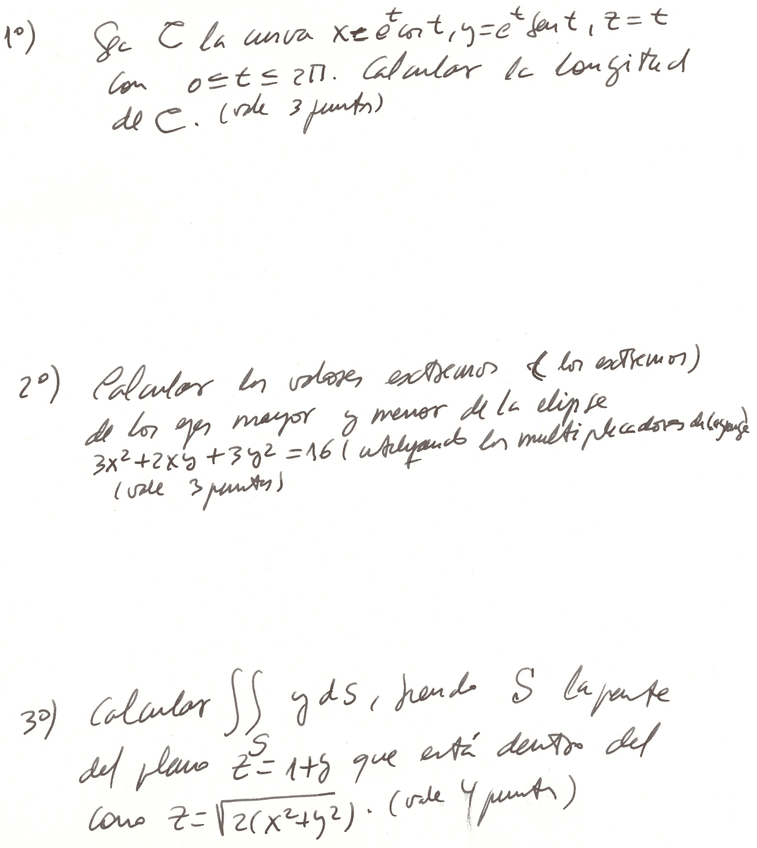 1º) Sea C la curva x=e^t cos t, y=e^t sen t, z=t
con 0≤t≤2π. Calcular la longitud
de C. (vale 3 puntos)
2º) Calcular los valores extremos (los extremos)
de los ejes mayor y menor de la elipse
3x²+2xy+3y²=16 (utilizando los multiplicadores de Lagrange)
(vale 3 puntos)
3º) Calcular ∬_S y dS, siendo S la parte
del plano z=1+y que está dentro del
cono z=√2(x²+y²). (vale 4 puntos)